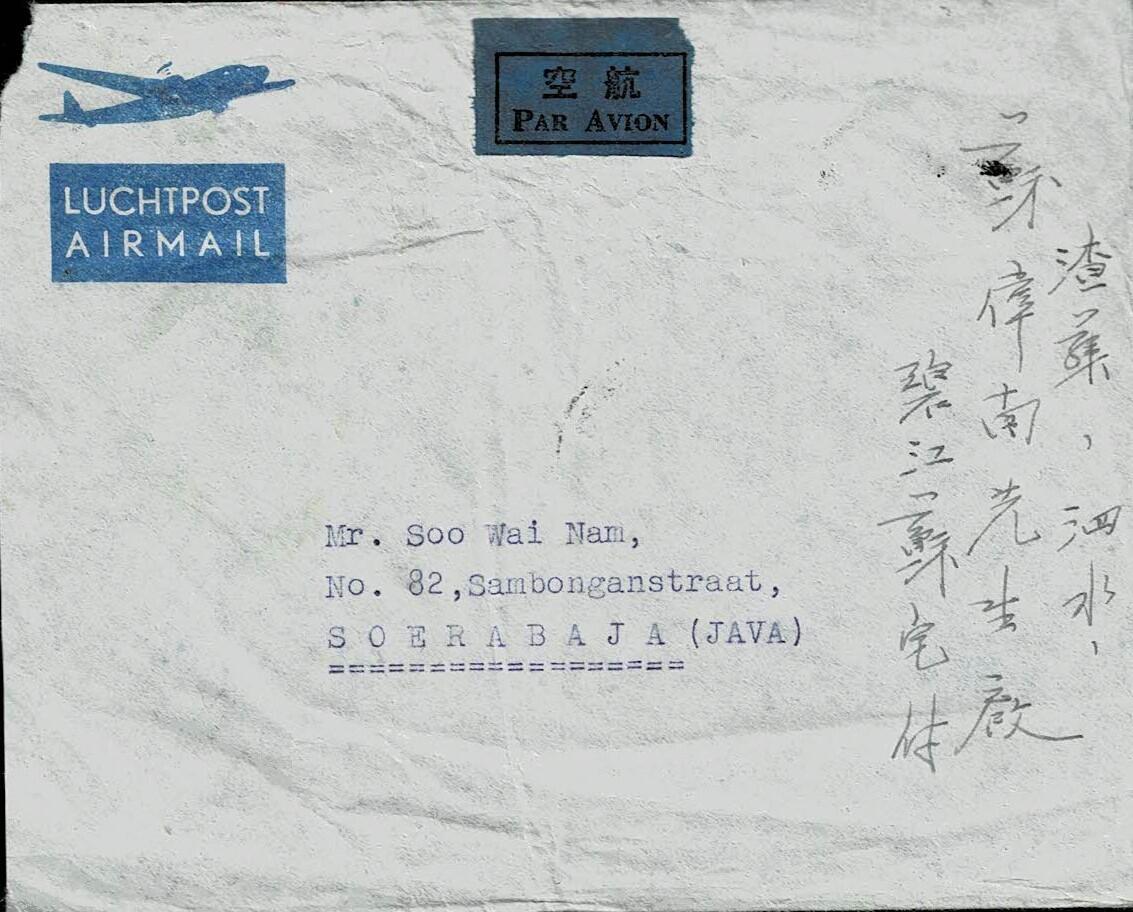 航空
PAR AVION
LUCHTPOST
AIRMAIL
渣華,泗水,
蘇偉南先生啟
碧江蘇宅付
Mr. Soo Wai Nam,
No. 82,Sambonganstraat,
S O E R A B A J A (JAVA)
==================